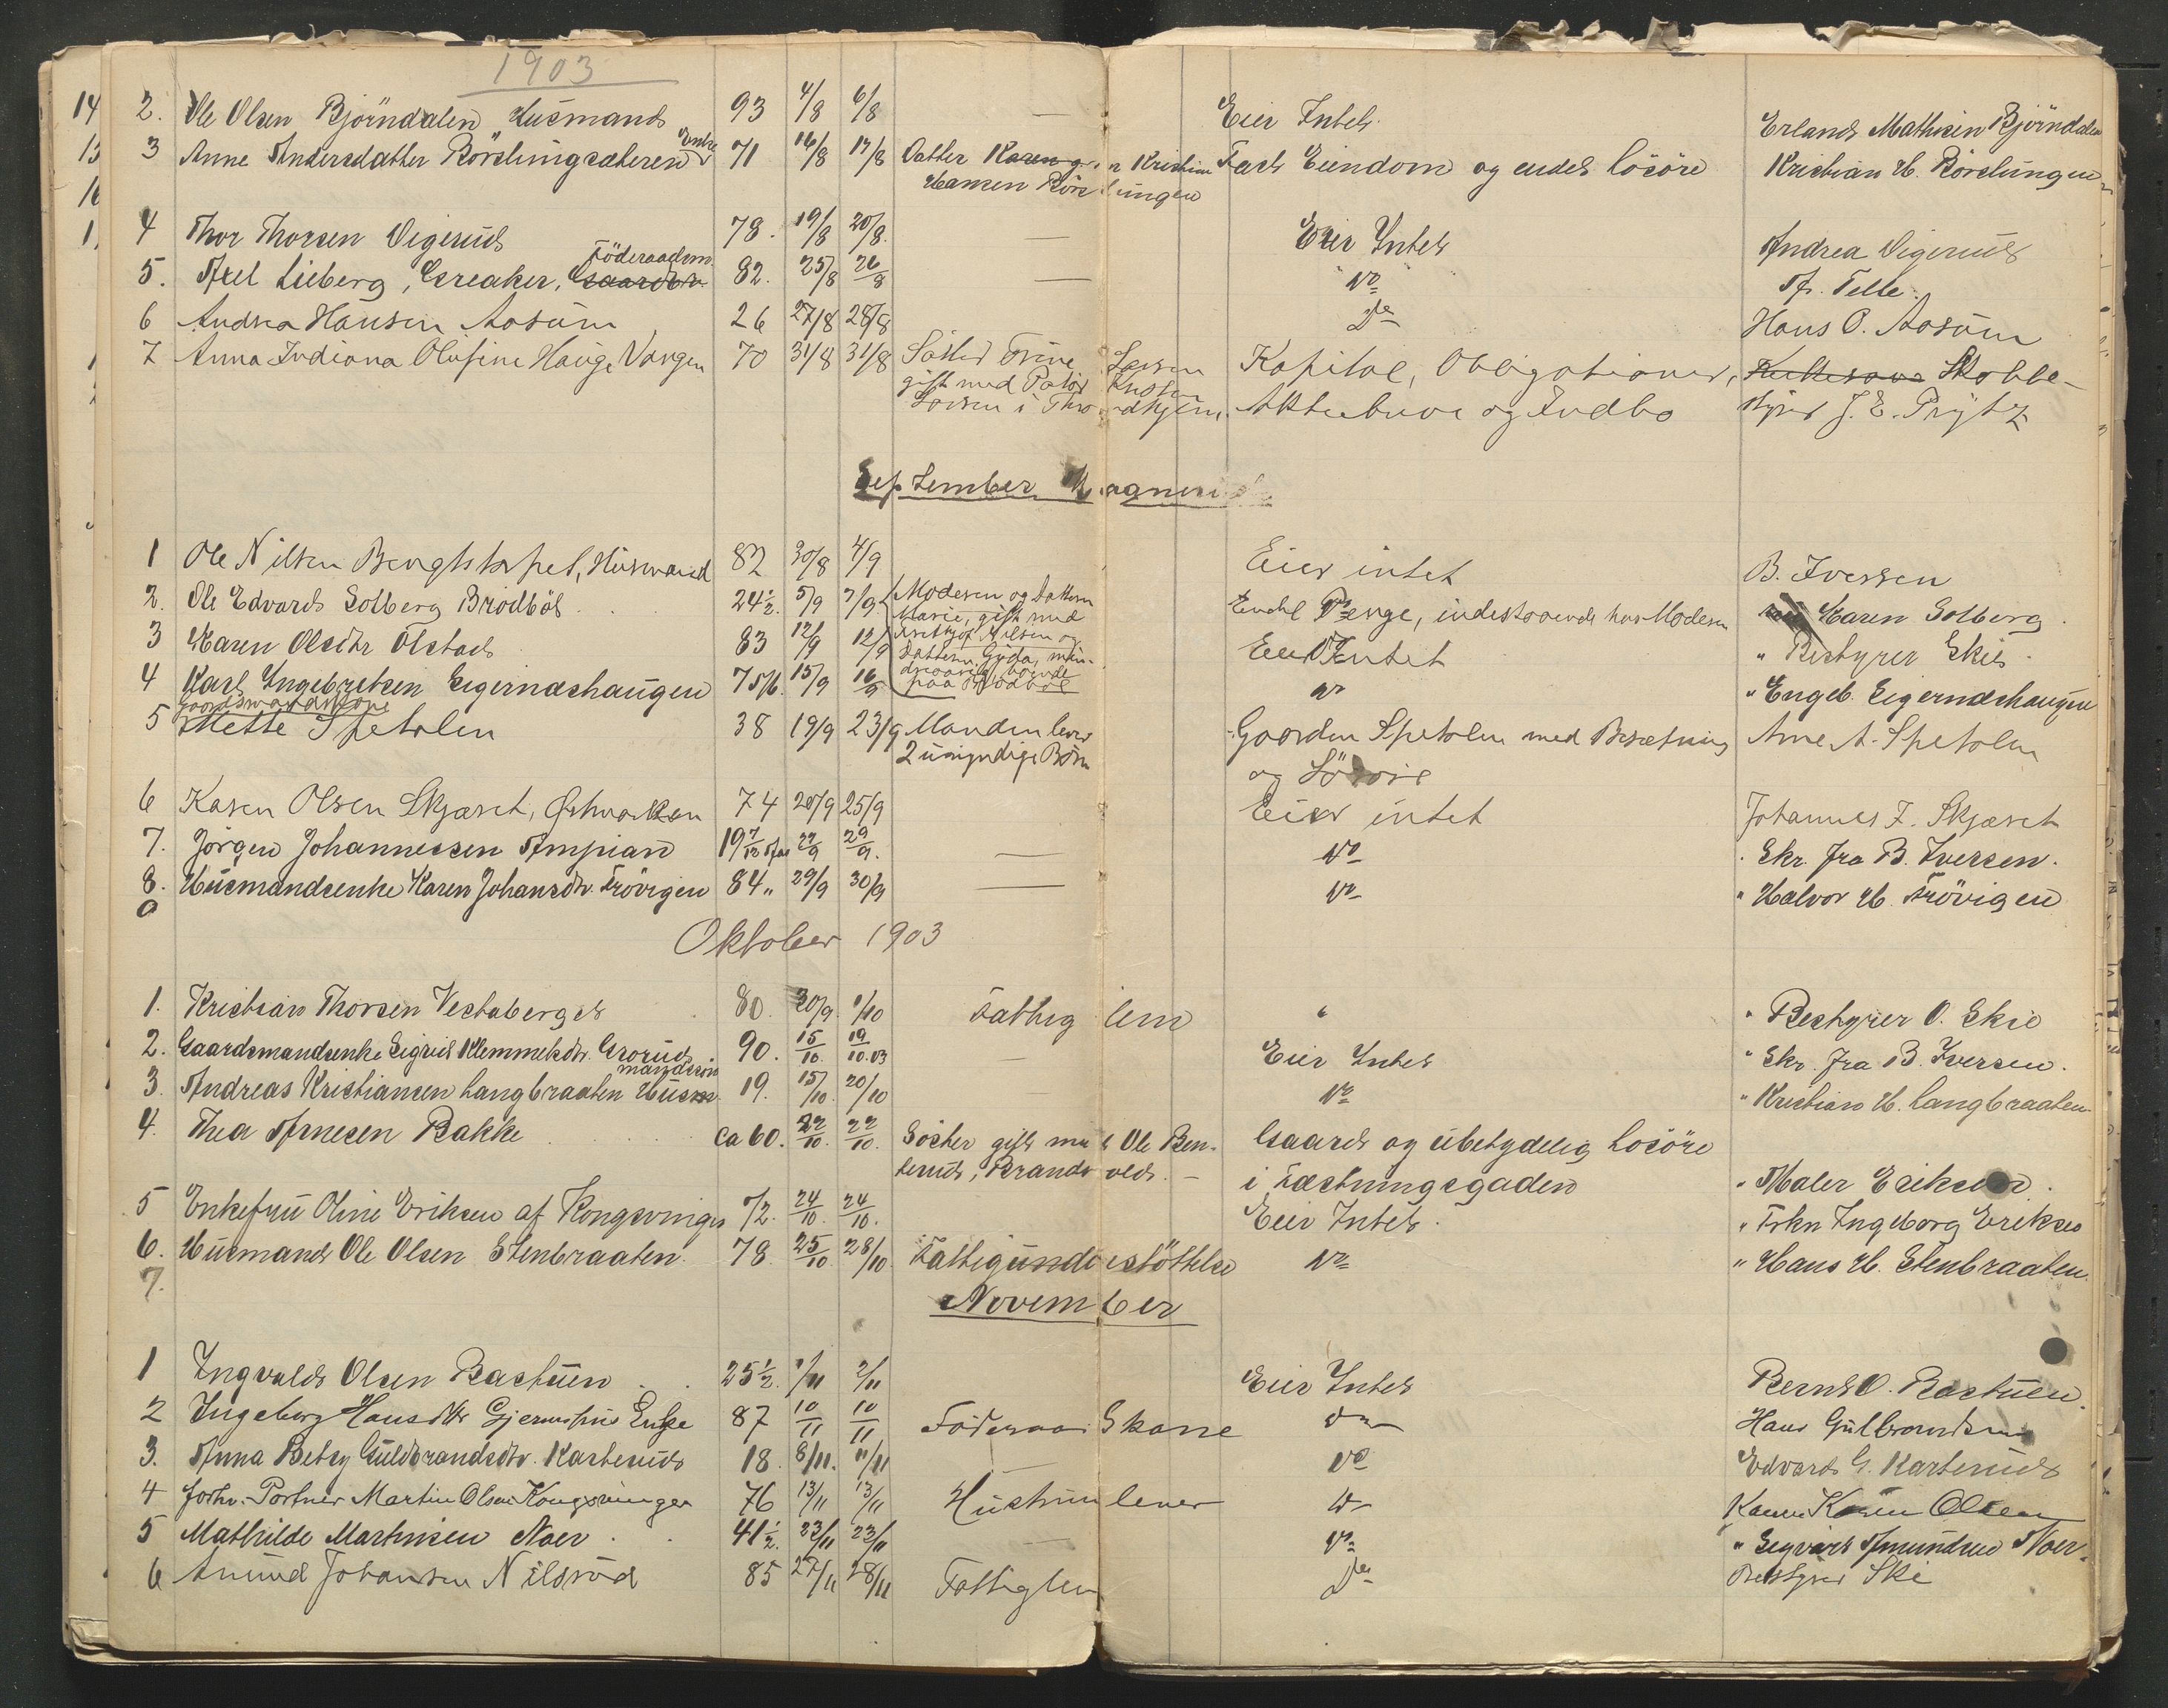 1903
2. Ole Olsen Bjørndalen Husmand 93 4/8 6/8 — Eier Intet. Erland Mathisen Bjørndalen
3 Anne Andersdatter Børslingsæteren Enke 71 16/8 17/8 Datter Karen gift Kristian Fast Eiendom og endel løsøre Kristian H. Børslingen
Hansen Børslingen
4 Thor Thorsen Vigerud 78. 19/8 20/8. — Eier Intet Andrea Vigerud
Föderaadsm
5. Axel Lieberg, Greaker, Gaardbr. 82. 25/8 26/8 — " do " Fr. Telle.
6 Andrea Hansen Aasum 26 27/8 28/8 do Hans O. Aasum
7 Anna Indiana Olufine Hauge Vangen 70 31/8 31/8 Søster Trine Larsen Kapital, Obligationer, Skatte-
gift med Larsen i Throndhjem. Aktiebreve og Indbo styrer J. E. Prytz
September Maaned
1 Ole Nilsen Husmand 82 30/8 4/9 Eier intet B. Iversen
2. Ole Edvard Solberg Brødbøl 24½. 5/9 7/9. Moderen og datteren Endel Penge, indestaaende hos Moderen Karen Solberg.
Marie, gift med
3 Karen Olsdtr Ølstad 83 12/9 12/9 Nilsen og Eier Intet " Bestyrer Skie.
datteren Gyda, min-
4 Karl Ingebretsen Sigernæshaugen 75 5/6. 15/9 16/9 dreaarig boende do " Engeb. Sigernæshaugen
paa Brødbøl
Gaardmandskone
5 Mette Spetalen 38 19/9 23/9 Manden lever Gaarden Spetalen med Besætning Arne A. Spetalen
2 umyndige Børn og Løsøre
6 Karen Olsen Skjæret, Østmarken 74 20/9 25/9 Eier intet Johannes F. Skjæret
7. Jørgen Johannessen Ampian 19 7/12 Aar 22/9 29/9. — do . Skr. fra B. Iversen.
8. Husmandsenke Karen Johansdtr. Frövigen 84 „ 29/9 30/9 — do " Halvor H. Frövigen
9
Oktober 1903
1. Kristian Thorsen Vestaberget 80. 30/9. 1/10 Fattiglem " " Bestyrer O. Skie
2. Gaardmandsenke Sigrid Klemmetsdtr. Grorud. 90. 15/10. 19/10.03 — Eier Intet " Skr. fra B. Iversen.
mandssøn
3. Andreas Kristiansen Langbraaten Husm. 19. 15/10. 20/10 — do " Kristian H. Langbraaten
4. Thea Arnesen Bakke ca 60. 22/10. 22/10. Søster gift med Ole Ben- Gaard og ubetydelig Løsøre
terud, Brandvold. — i Fæstningsgaden " Maler Eriksen.
5 Enkefru Oline Eriksen af Kongsvinger 72. 24/10. 24/10. Eier Intet. " Frkn Ingeborg Eriksen
6. Husmand Ole Olsen Stenbraaten 78. 25/10. 28/10. Fattigunderstöttelse do " Hans H. Stenbraaten
7.
November
1 Ingvald Olsen Bastuen 25½. 1/11 2/11 Eier Intet Bernt O. Bastuen.
2 Ingeborg Hansdtr Gjermshus Enke 87 10/11 10/11 Föderaadskone do Hans Gulbrandsen
3. Anna Betsy Guldbrandsdtr. Karterud 18. 8/11. 11/11 do Edvard G. Karterud
4 forhv. Portner Martin Olsen Kongsvinger 76 13/11 13/11 Hustruen lever do Karen Olsen
5 Mathilde Martinsen Noer 41½. 23/11 23/11 — do " Sigvart Amundsen Noer.
6 Amund Johansen Nilsrud 85 27/11 28/11 Fattiglem do Bestyrer Ski